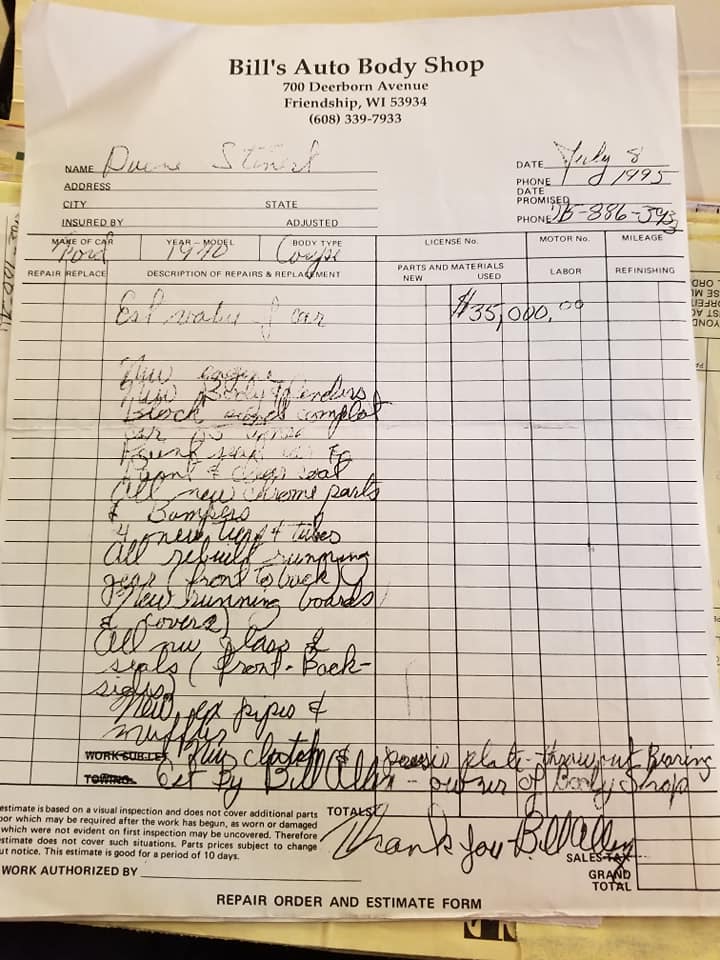 Bill's Auto Body Shop
700 Deerborn Avenue
Friendship, WI 53934
(608) 339-7933
NAME Duane
DATE July 8
ADDRESS
PHONE 1995
CITY STATE
DATE PROMISED
INSURED BY ADJUSTED
PHONE 715-886-393
MAKE OF CAR YEAR – MODEL BODY TYPE LICENSE No. MOTOR No. MILEAGE
Ford 1940 Coupe
REPAIR REPLACE DESCRIPTION OF REPAIRS & REPLACEMENT PARTS AND MATERIALS NEW USED LABOR REFINISHING
Est value of car $35,000.00
New engine
New Body & fenders
complet
car
& seal
All new chrome parts
& Bumpers
4 new tires & tubes
All rebuilt running
gear (front to back)
New running boards
& covers)
All nu glass &
seals (front-Back-
sides)
New ex pipes &
muffler
WORK SUB-LET Nuw clutch & plate-throwout Bearing
TOWING Est By Bill Allen - owner of Body Shop
estimate is based on a visual inspection and does not cover additional parts
bor which may be required after the work has begun, as worn or damaged
which were not evident on first inspection may be uncovered. Therefore
estimate does not cover such situations. Parts prices subject to change
ut notice. This estimate is good for a period of 10 days.
TOTALS
Thank you - Bill Allen
SALES TAX
WORK AUTHORIZED BY
GRAND TOTAL
REPAIR ORDER AND ESTIMATE FORM